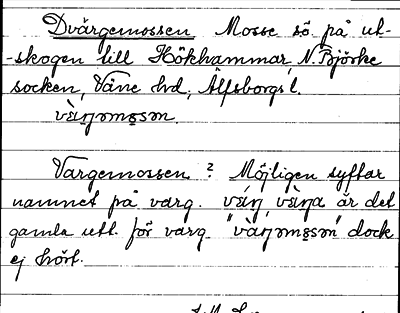 Dvärgemossen Mosse sö på ut-
-skogen till Hökhammar, N. Björke
socken, Väne hd, Älfsborgs l.
Vargemossen? Möjligen syftar
namnet på varg. är det
gamla utt. för varg. dock
ej hört.